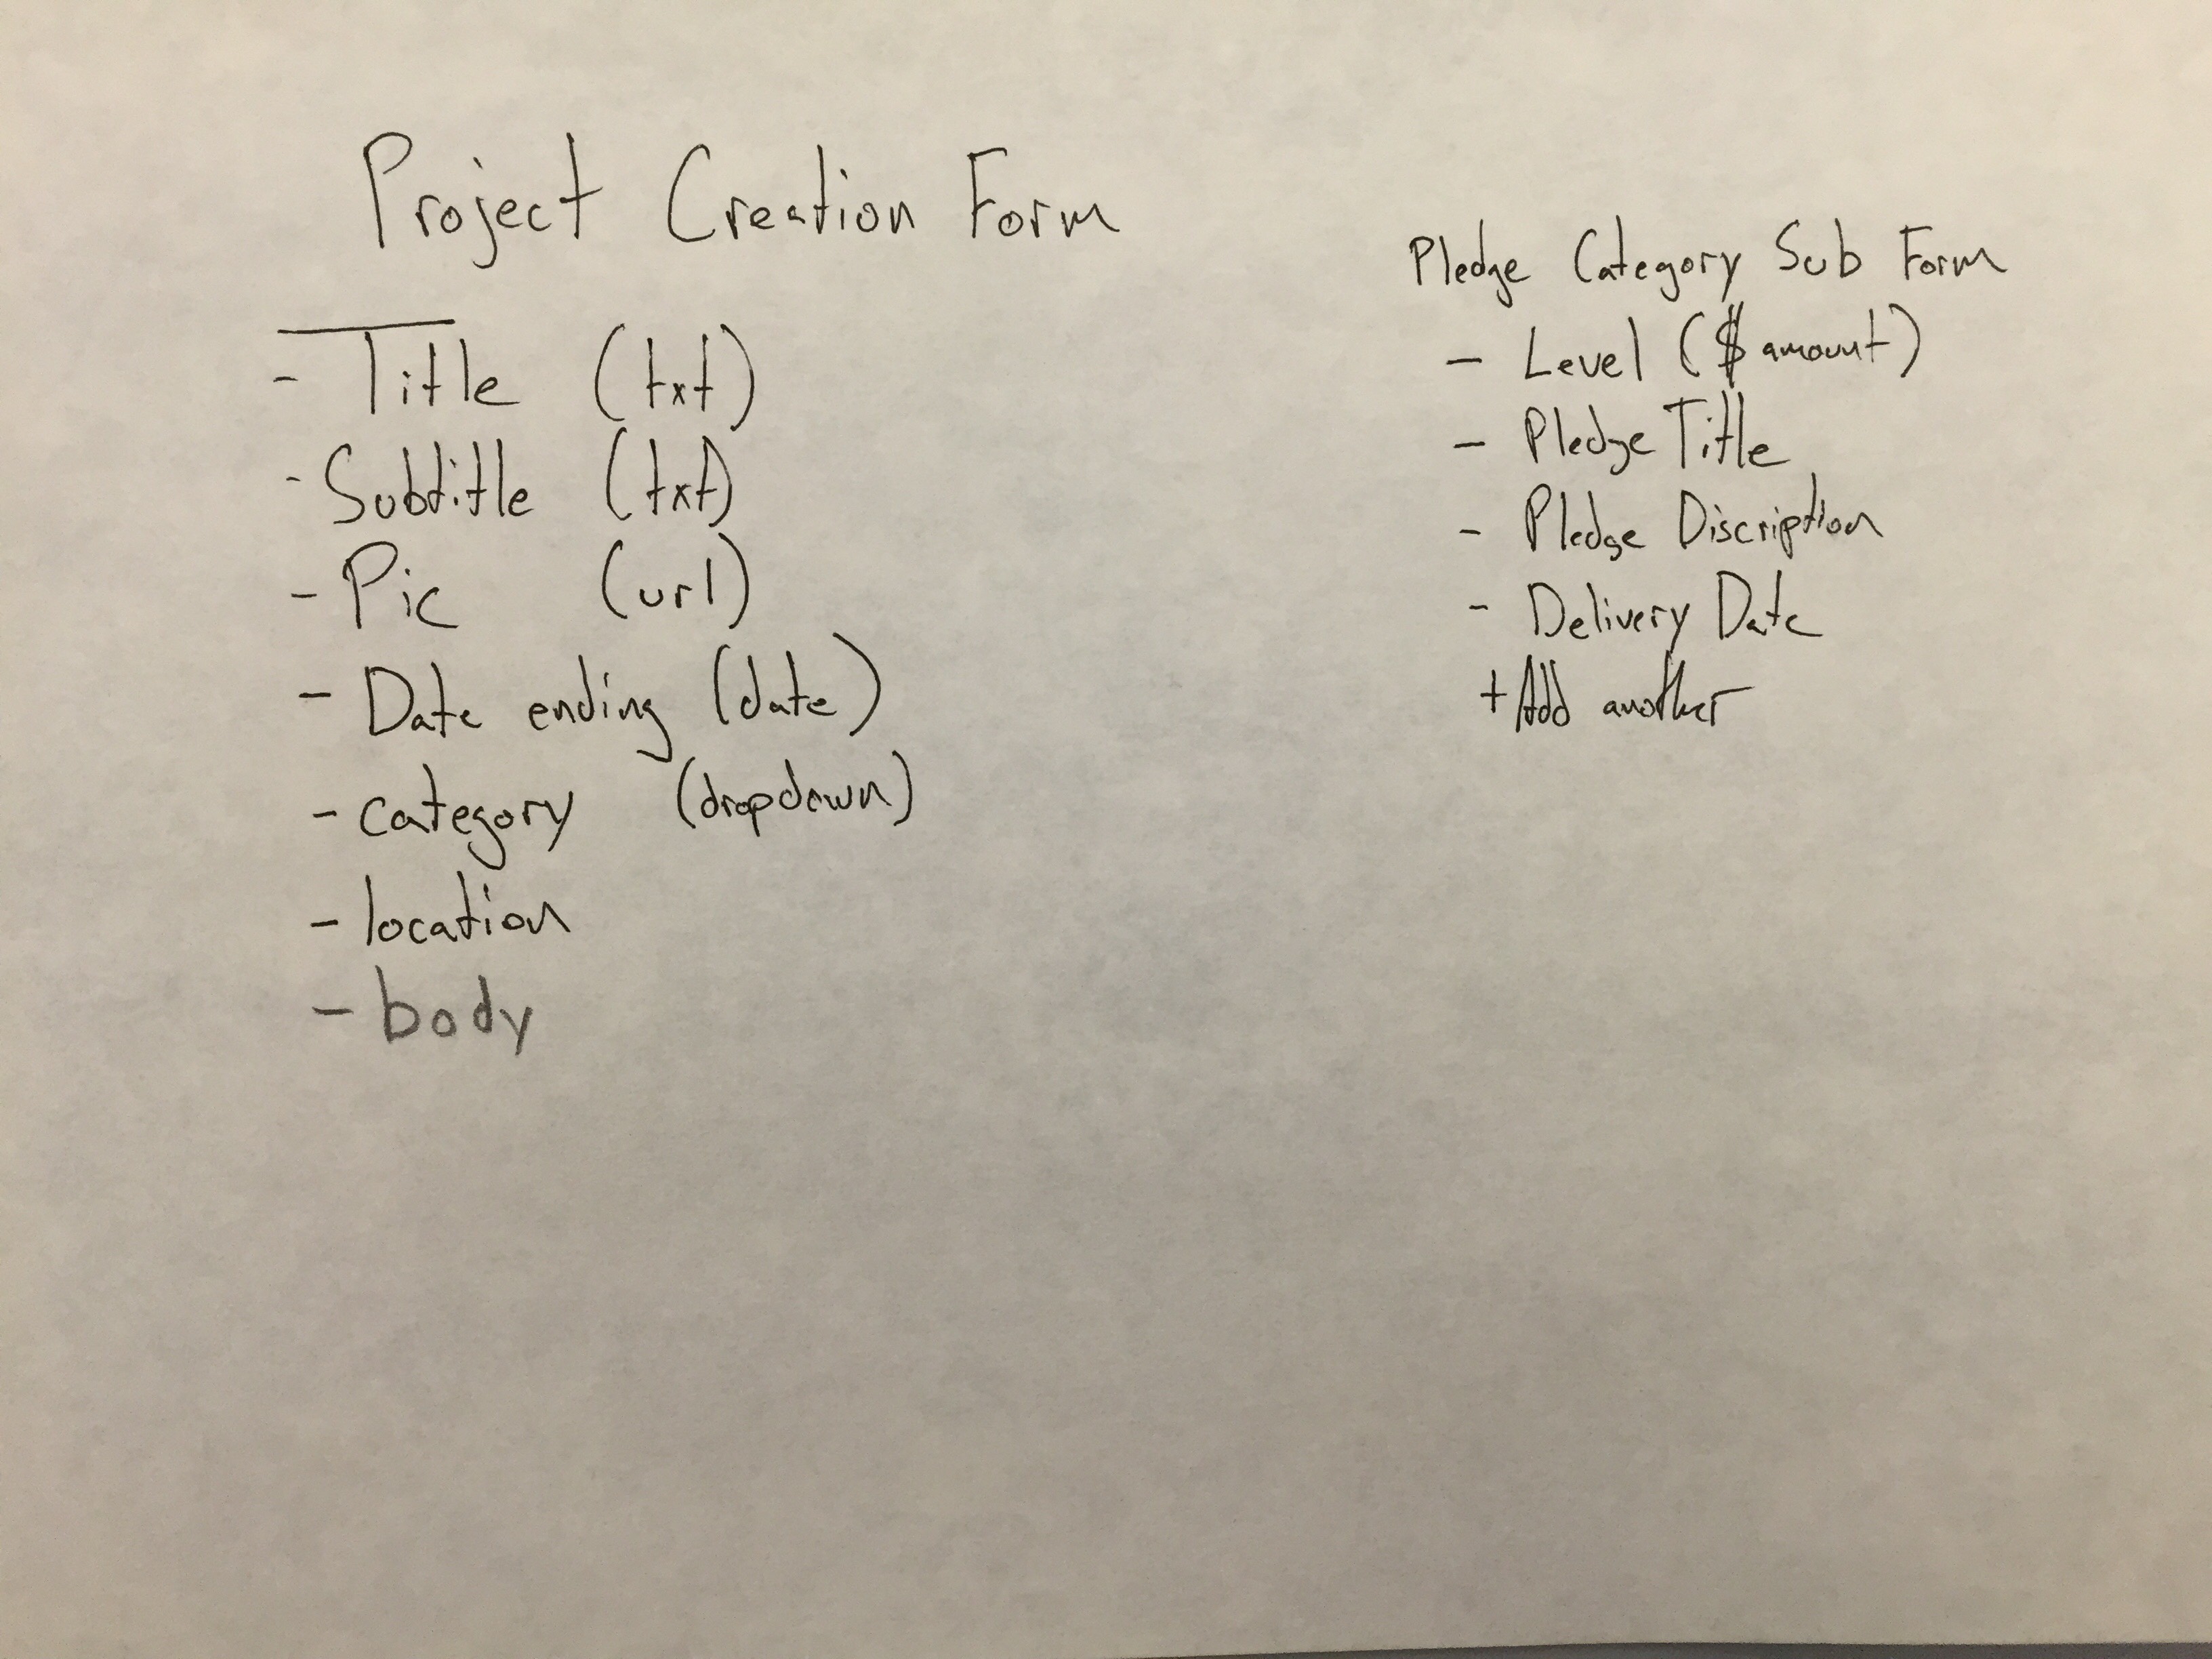 Project Creation Form
- Title (txt)
- Subtitle (txt)
- Pic (url)
- Date ending (date)
- category (dropdown)
- location
- body
Pledge Category Sub Form
- Level ($ amount)
- Pledge Title
- Pledge Discription
- Delivery Date
+ Add another